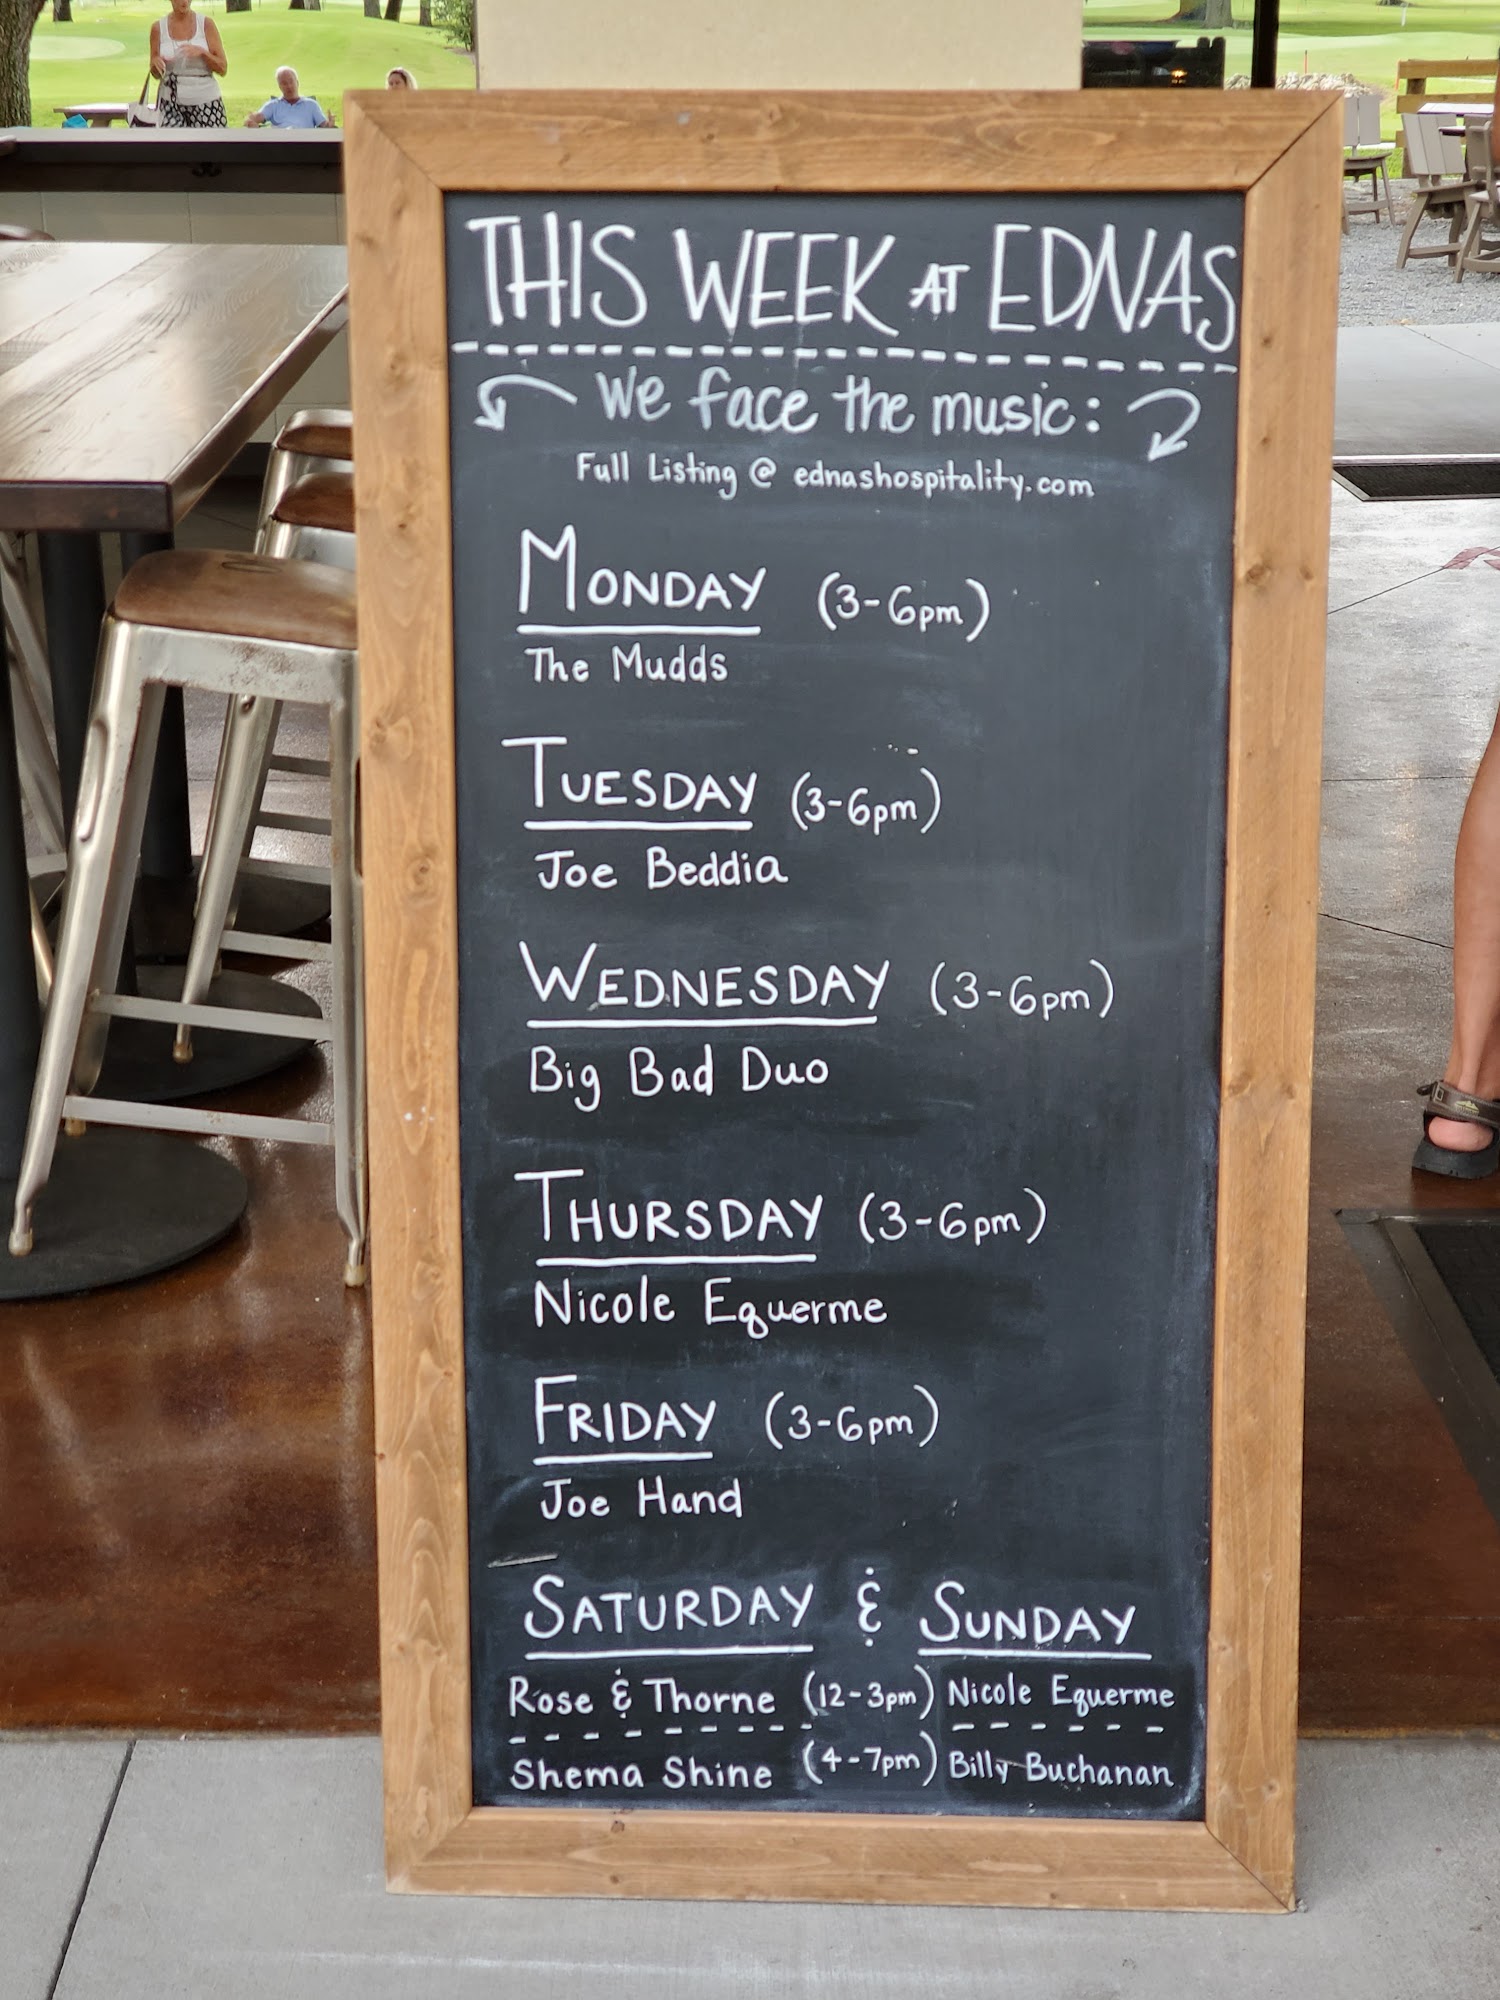 THIS WEEK AT EDNAS
We face the music:
Full Listing @ ednashospitality.com
MONDAY (3-6pm)
The Mudds
TUESDAY (3-6pm)
Joe Beddia
WEDNESDAY (3-6pm)
Big Bad Duo
THURSDAY (3-6pm)
Nicole Equerme
FRIDAY (3-6pm)
Joe Hand
SATURDAY & SUNDAY
Rose & Thorne (12-3pm) Nicole Equerme
Shema Shine (4-7pm) Billy Buchanan